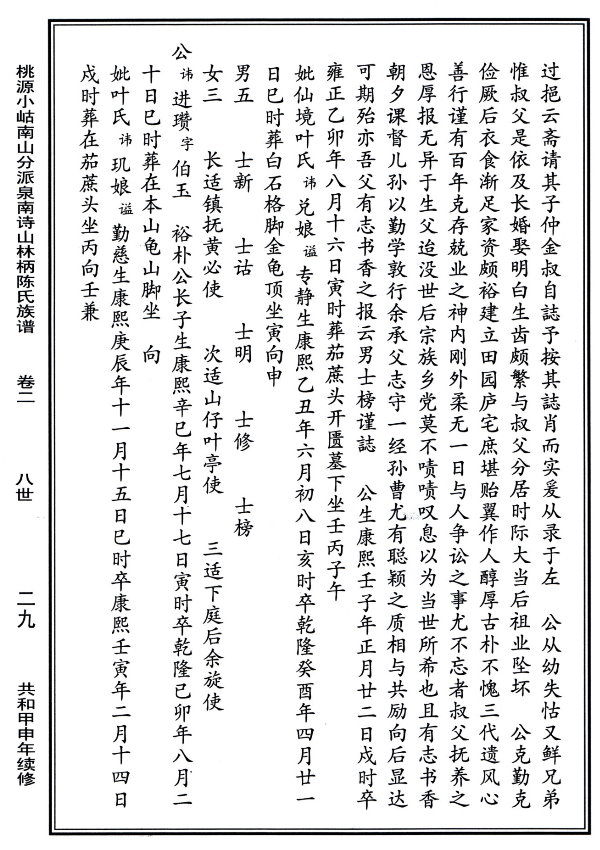 过挹云斋请其子仲金叔自誌予按其誌肖而实爰从录于左 公从幼失怙又鲜兄弟
惟叔父是依及长婚娶明白生齿颇繁与叔父分居时际大当后祖业坠坏 公克勤克
俭厥后衣食渐足家资颇裕建立田园庐宅庶堪贻翼作人醇厚古朴不愧三代遗风心
善行谨有百年克存兢业之神内刚外柔无一日与人争讼之事尤不忘者叔父抚养之
恩厚报无异于生父迨没世后宗族乡党莫不啧啧叹息以为当世所希也且有志书香
朝夕课督儿孙以勤学敦行余承父志守一经孙曹尤有聪颖之质相与共励向后显达
可期殆亦吾父有志书香之报云男士榜谨誌 公生康熙壬子年正月廿二日戍时卒
雍正乙卯年八月十六日寅时葬茄蔗头开匮墓下坐壬丙子午
妣仙境叶氏讳兑娘谥专静生康熙乙丑年六月初八日亥时卒乾隆癸酉年四月廿一
日巳时葬白石格脚金龟顶坐寅向申
男五 士新 士诂 士明 士修 士榜
女三 长适镇抚黄必使 次适山仔叶亭使 三适下庭后余旋使
公讳进瓒字伯玉 裕朴公长子生康熙辛巳年七月十七日寅时卒乾隆己卯年八月二
十日巳时葬在本山龟山脚坐 向
妣叶氏讳玑娘谥勤慈生康熙庚辰年十一月十五日巳时卒康熙壬寅年二月十四日
戍时葬在茄蔗头坐丙向壬兼
桃源小岵南山分派泉南诗山林柄陈氏族谱 卷二 八世 二九 共和甲申年续修